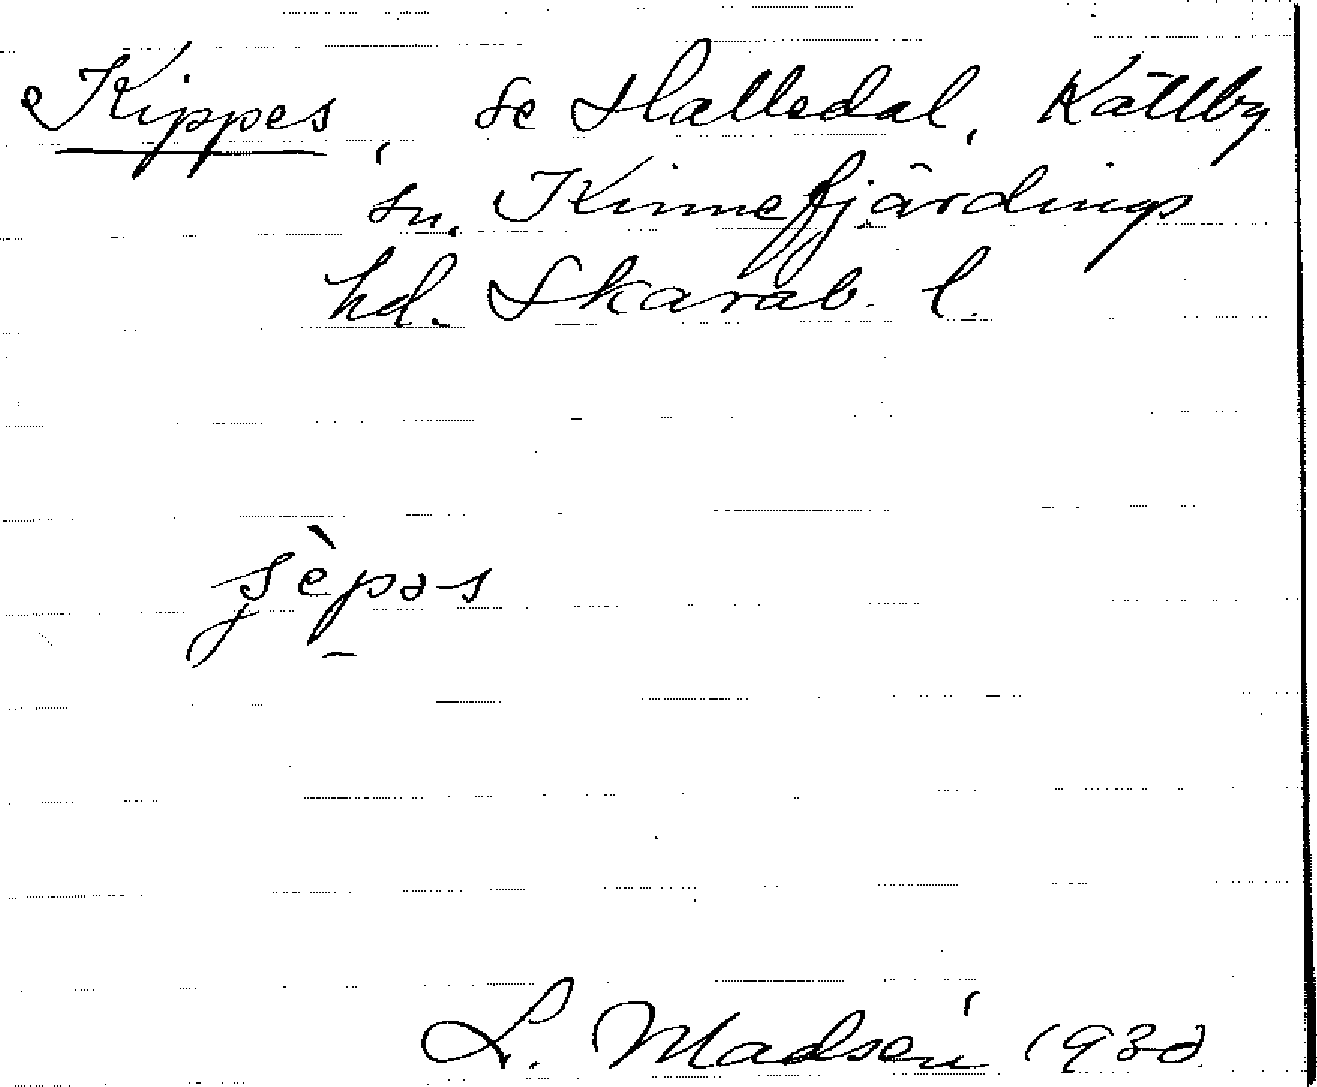 Kippes, se Halledal, Källby
sn. Kinnefjärdings
hd. Skarab. l.
L. Madsén 1930